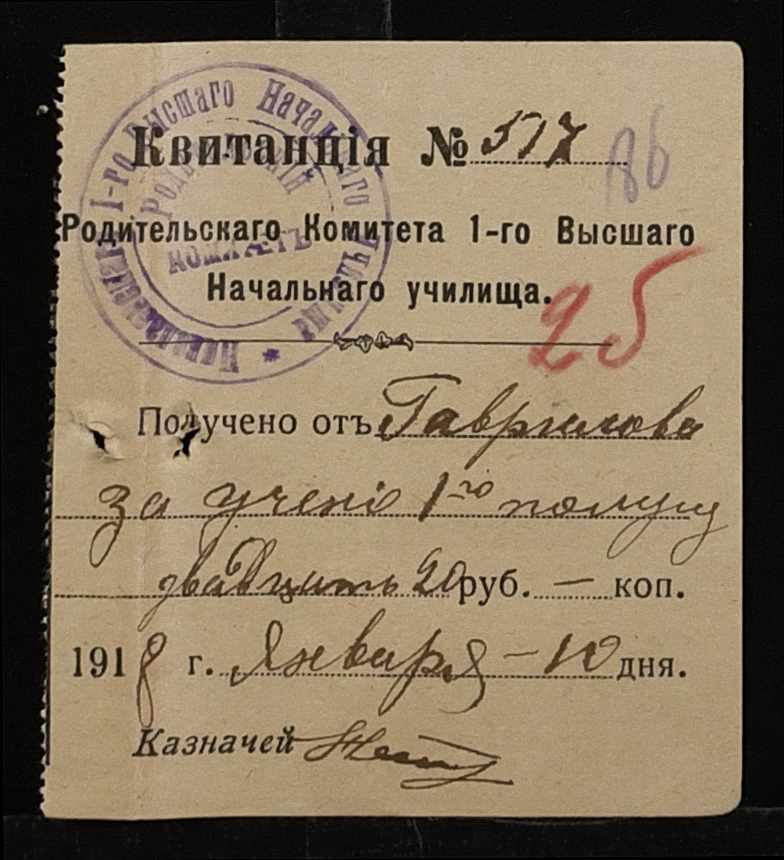 Квитанція № 517
86
Родительскаго Комитета 1-го Высшаго
Начальнаго училища.
25
Получено отъ Гаврилова
за учені 1го полуг
двадцать 20 руб. — коп.
1918 г. Января — 10 дня.
Казначей
1-го Высшаго Начальнаго Училища
Родительскій
Комитетъ